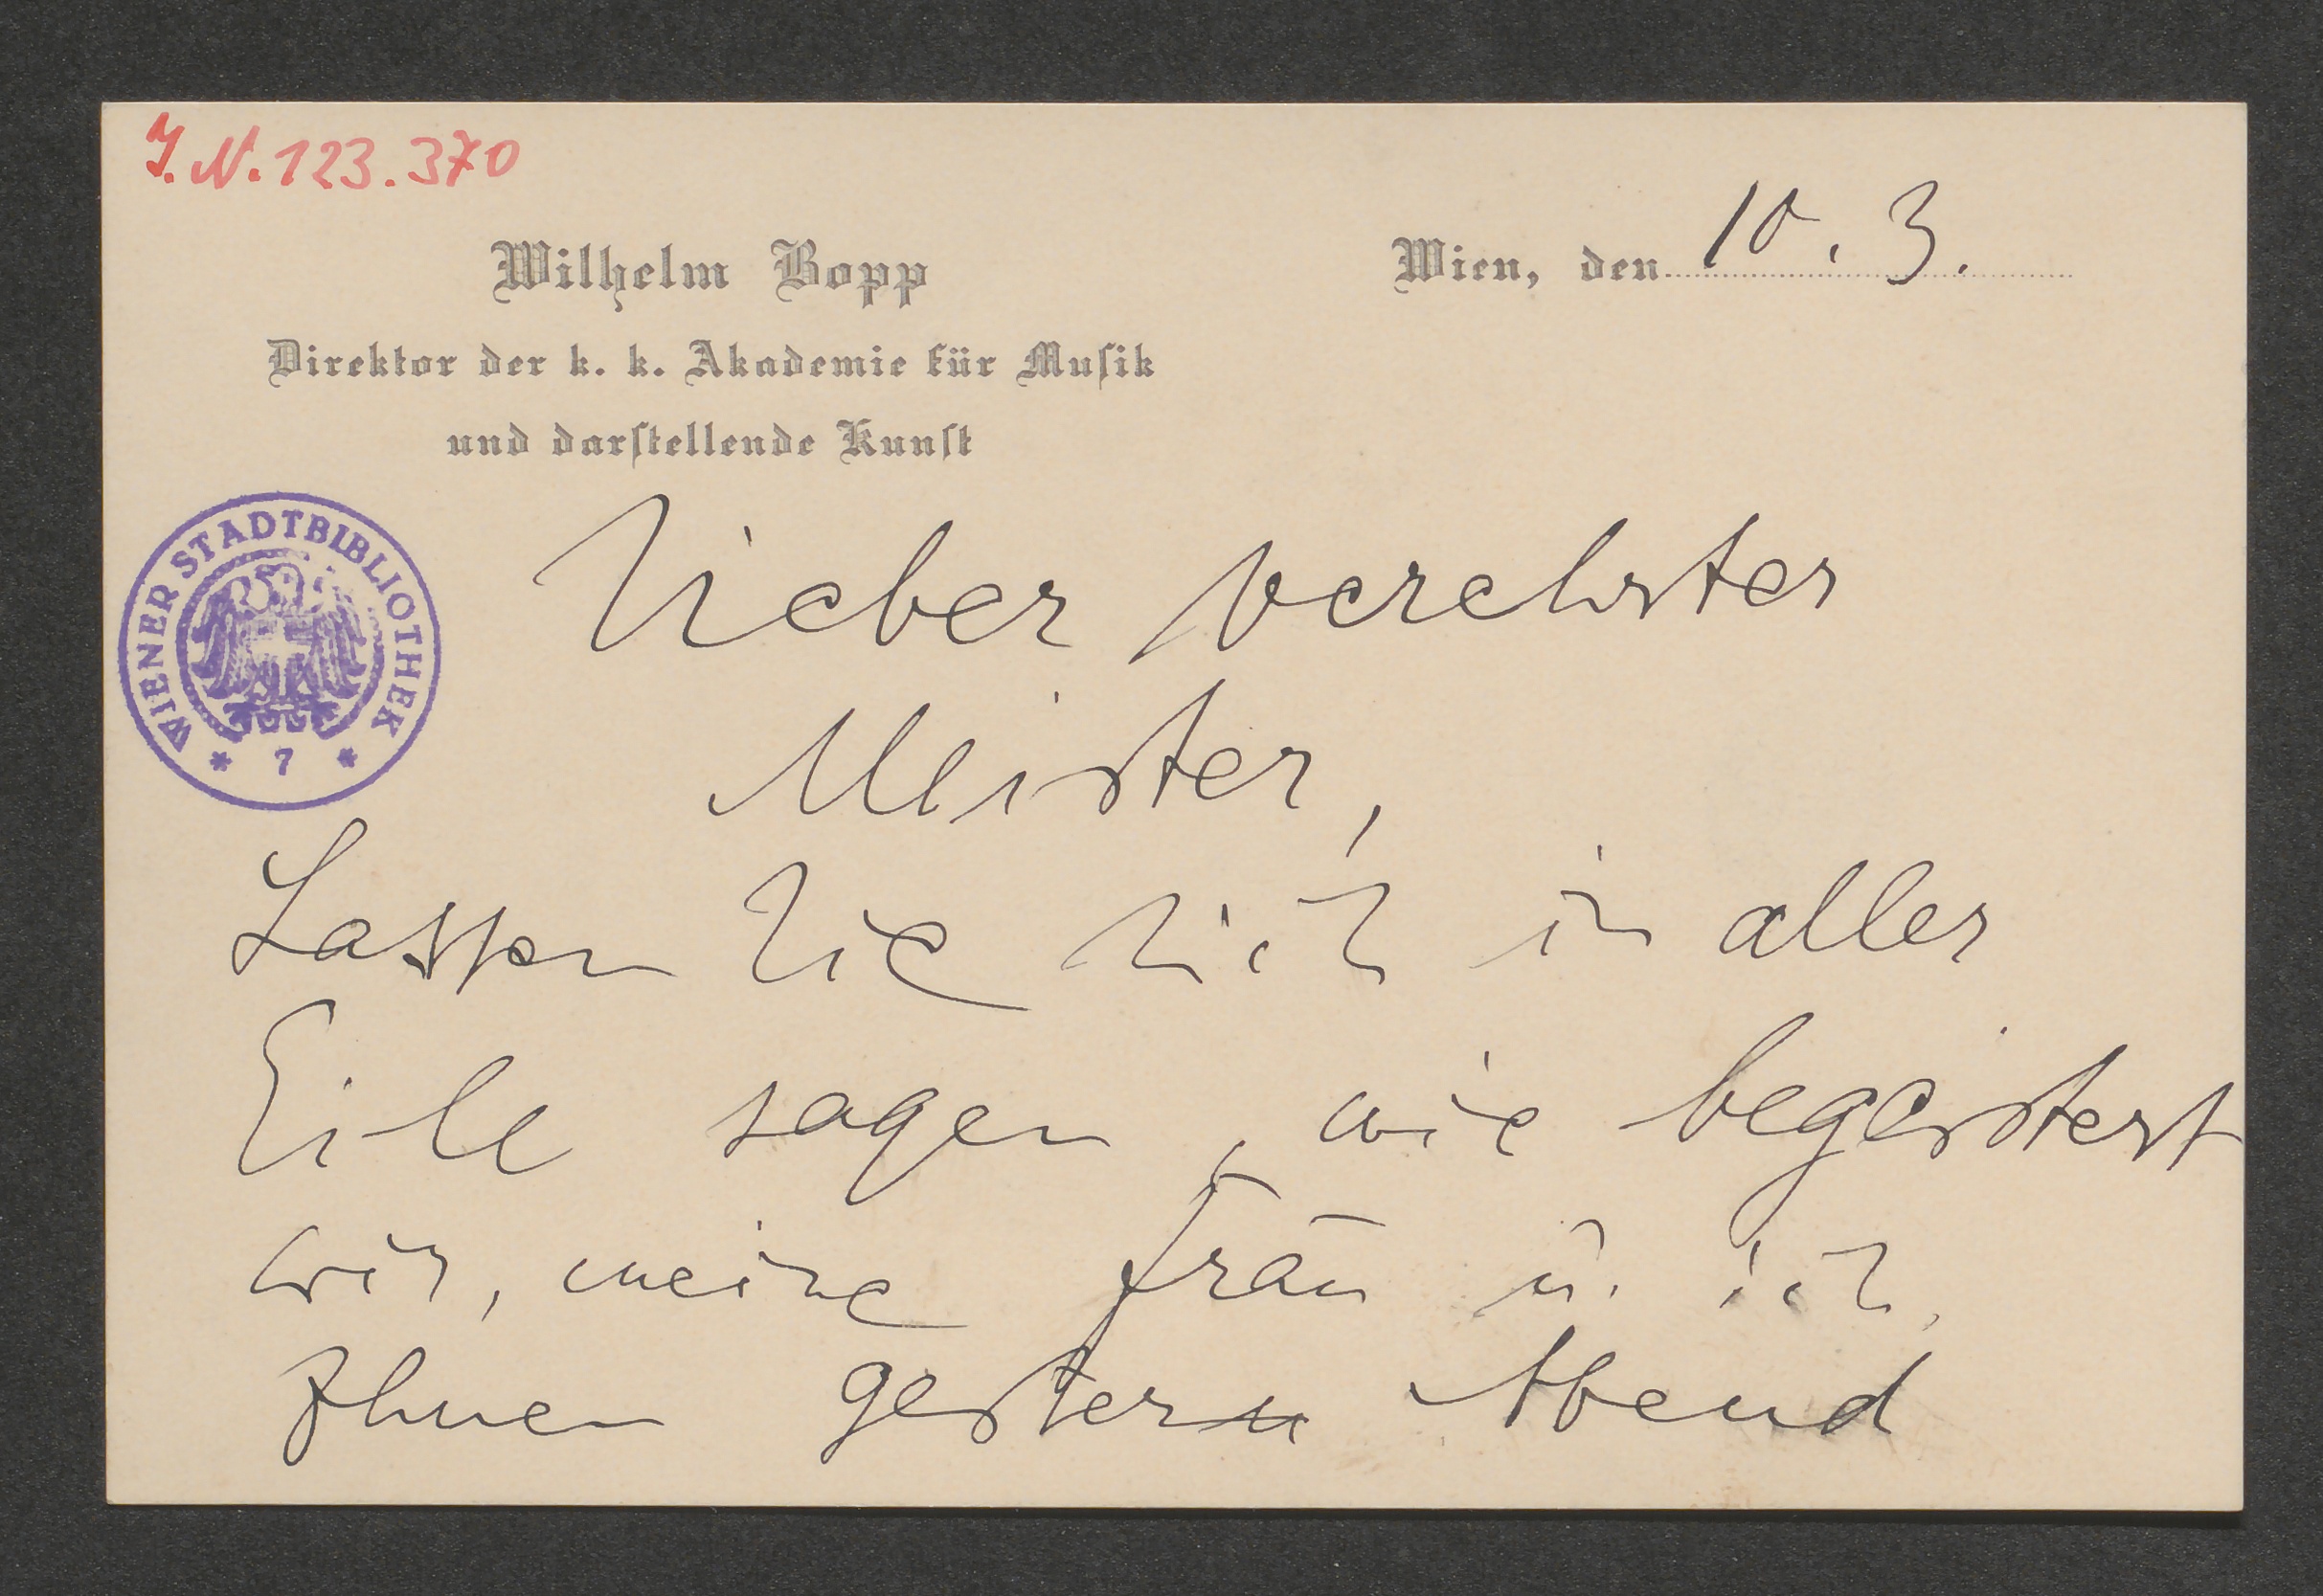 J.N. 123.370
Wilhelm Bopp
Direktor der k. k. Akademie für Muſik
und darſtellende Kunſt
Wien, den 10. 3.
WIENER STADTBIBLIOTHEK
* 7 *
Lieber verehrter
Meister,
Lassen Sie sich in aller
Eile sagen, wie begeistert
wir, meine Frau u. ich,
Ihnen gestern Abend